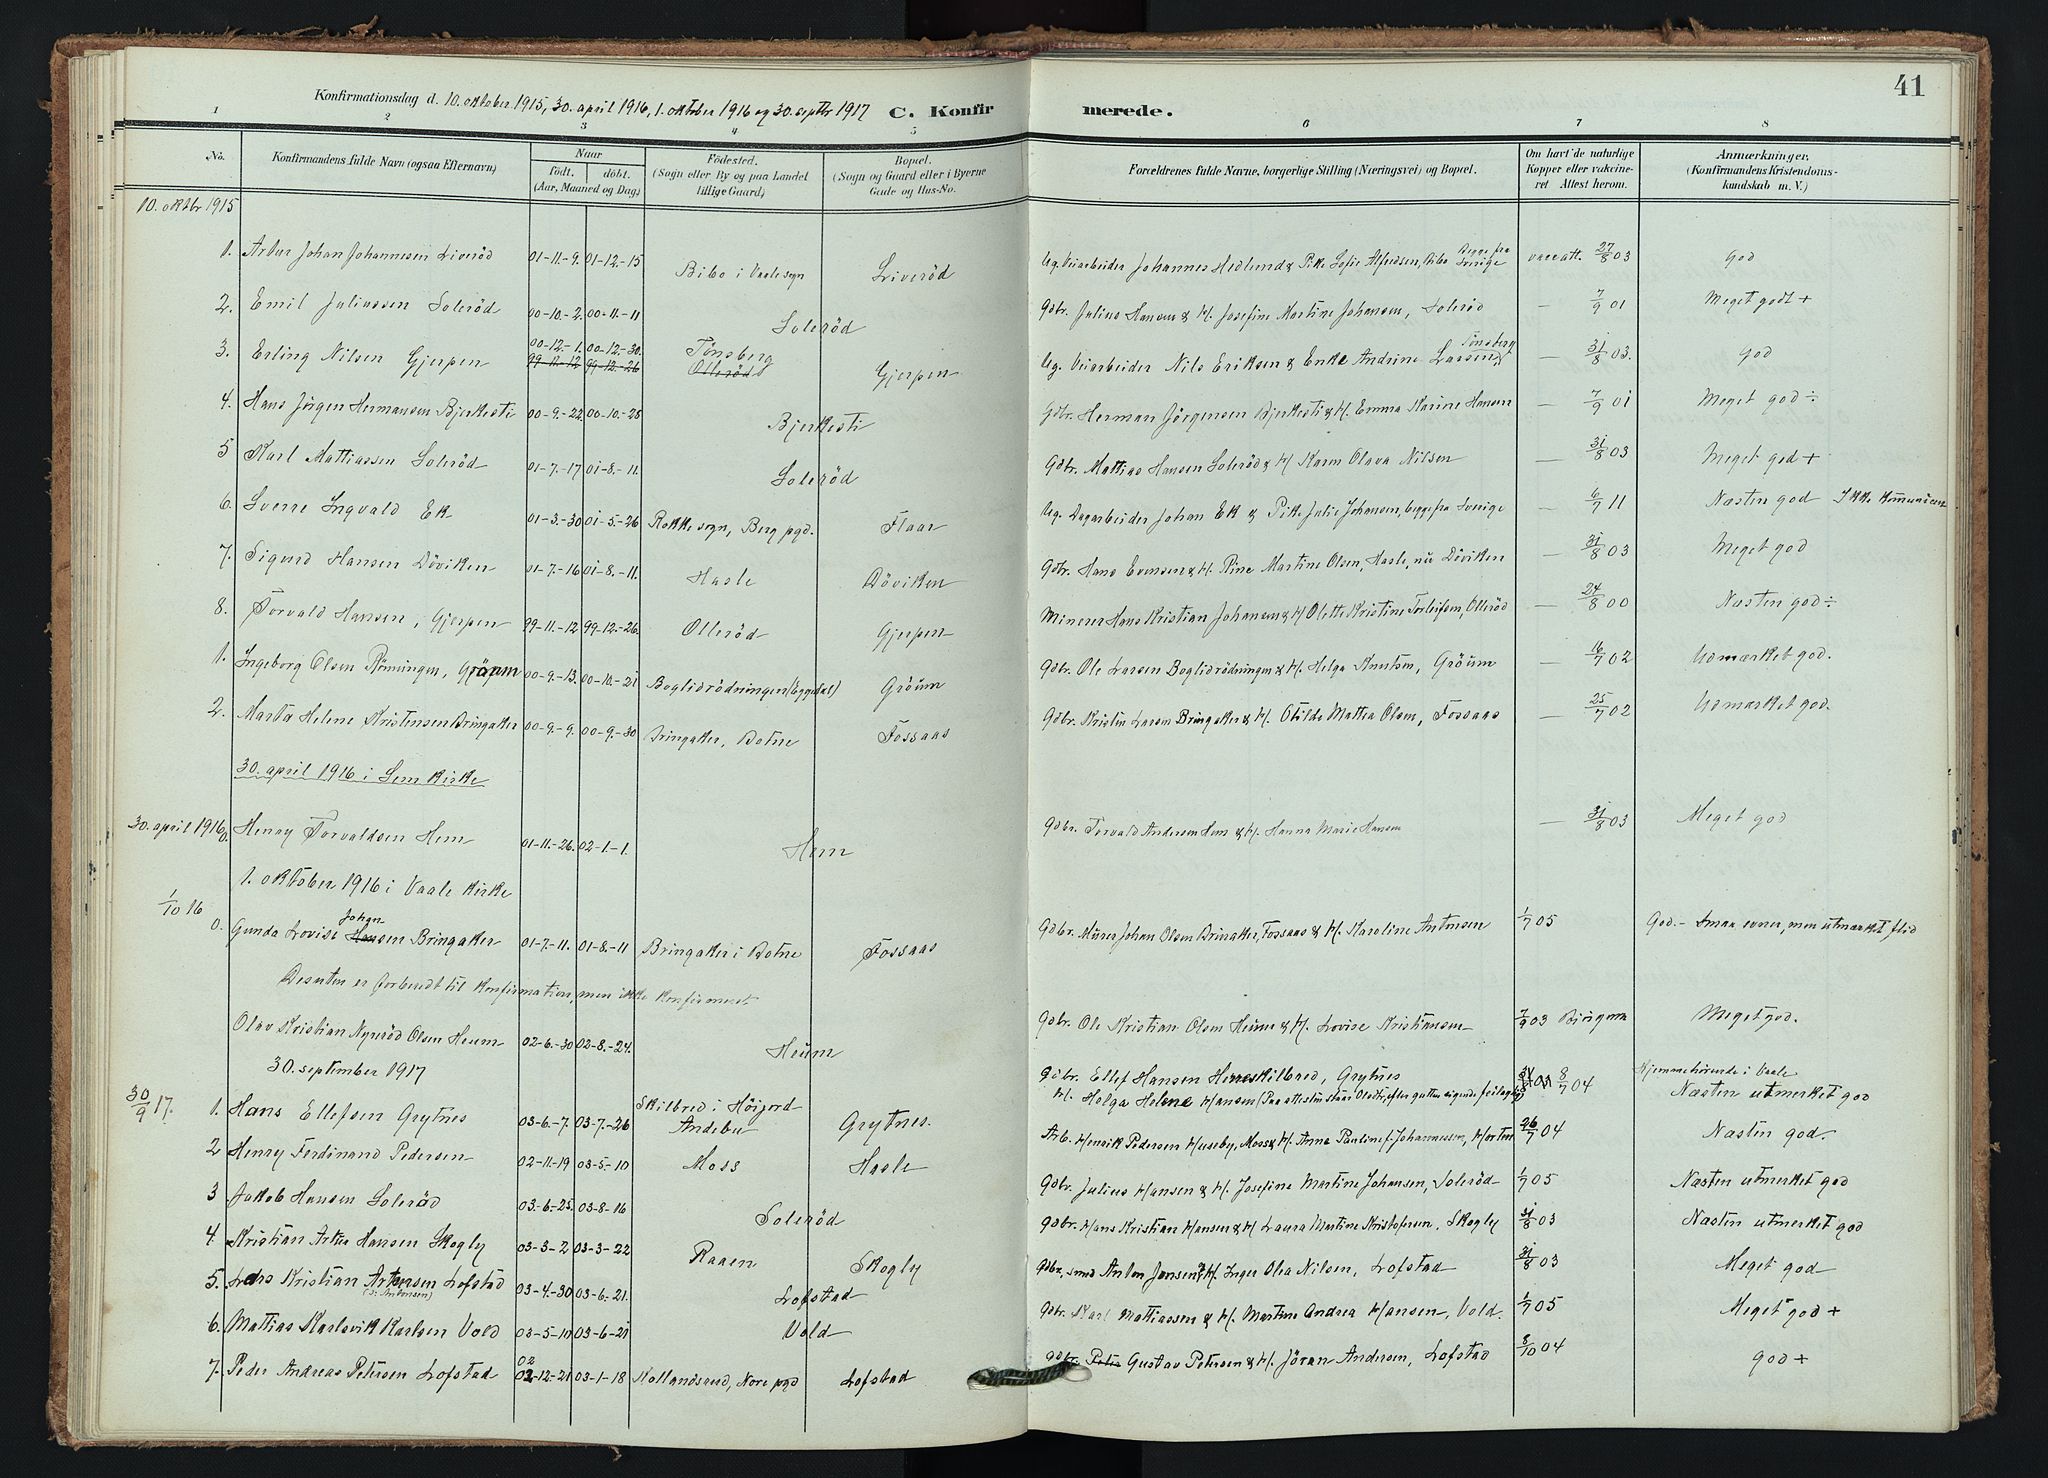 41
Konfirmationsdag d. 10. oktober 1915, 30. april 1916, 1. oktober 1916 og 30. septbr 1917 C. Konfirmerede.
1 2 3 4 5 6 7 8
No. Konfirmandens fulde Navn (ogsaa Efternavn) Naar født. døbt. (Aar, Maaned og Dag) Fødested. (Sogn eller By og paa Landet tillige Gaard) Bopæl. (Sogn og Gaard eller i Byerne Gade og Hus-No. Forældrenes fulde Navne, borgerlige Stilling (Næringsvei) og Bopæl. Om havt de naturlige Kopper eller vakcineret Attest herom. Anmærkninger. (Konfirmandens Kristendomskundskab m. V.)
10. oktbr 1915
1. Artur Johan Johannesen Liveröd 01-11-9. 01-12-15 Bibo i Vaale sogn Liveröd Ug. Veiarbeider Johannes Hedlund & Pike Sofie Alfredsen, Bibo Begge fra Sverige vacc att. 27/8 03 God
2. Emil Juliussen Soleröd 00-10-2. 00-11-11 Soleröd Gdbr. Julius Hansen & H. Josefine Martine Johansen, Soleröd — 7/9 01 Meget godt +
3. Erling Nilsen Gjerpen 00-12-1. 00-12-30. 99-11-12 99-12-26 Tønsberg Olleröd Gjerpen Ug. Veiarbeider Nils Eriksen & Enke Andrine Larsen, Tönsberg — 31/8 03. God
4. Hans Jörgen Hermansen Bjerkesti 00-9-22. 00-10-28 Bjerkesti Gdbr. Herman Jörgensen Bjerkesti & H. Emma Karine Hansen — 7/9 01 Meget god ÷
5 Karl Mattiassen Soleröd 01-7-17 01-8-11. Soleröd Gdbr. Mattias Hansen Soleröd & H Karen Olava Nilsen — 31/8 03 Meget god +
6. Sverre Ingvald Ek 01-3-30 01-5-26 Rokke sogn, Berg pgd. Flaar Ug. Dagarbeider Johan Ek & Pike Julie Johansen, begge fra Sverige — 6/7 11 Næsten god Ikke
7. Sigurd Hansen Döviken 01-7-16 01-8-11. Hasle Döviken Gdbr. Hans Evensen & H. Rine Martine Olsen, Hasle, nu Döviken — 31/8 03 Meget god
8. Torvald Hansen, Gjerpen 99-11-12 99-12-26. Olleröd Gjerpen Minerer Hans Kristian Johansen & H Olette Kristine Torleifsen, Olleröd — 24/8 00 Næsten god ÷
1. Ingeborg Olsen Rönningen, Gröum 00-9-13. 00-10-21 Boglidrödningen (Eggedal) Gröum Gdbr. Ole Larsen Boglidrödningen & H. Helga Knutsen, Gröum — 16/7 02 Udmærket god.
2. Marta Helene Kristensen Bringaker 00-9-9. 00-9-30 Bringaker, Botne Fossaas Gdbr. Kristin Larsen Bringaker & H. Otilde Mattea Olsen, Fossaas — 25/7 02 Udmærket god.
30. april 1916 i Sem kirke
30. april 1916 0. Henry Torvaldsen Hem 01-11-26. 02-1-1. Hem Gdbr. Torvald Andersen Hem & H. Hanna Marie Hansen — 31/8 03 Meget god
1. oktober 1916 i Vaale kirke
1/10 16 0. Gunda Lovise Johansen Bringaker 01-7-11. 01-8-11 Bringaker i Botne Fossaas Gdbr. Murer Johan Olsen Bringaker, Fossaas & H. Karoline Antonsen 1/7 05 God. - Smaa evner, men utmærket flid
Desuten er forberedt til konfirmation, men ikke konfirmeret
Olav Kristian Nyeröd Olsen Heum 02-6-30 02-8-24. Heum Gdbr. Ole Kristian Olsen Heum & H. Lovise Kristiansen 7/9 03 Meget god.
30. september 1917
30/9 17. 1. Hans Ellefsen Grytnes 03-6-7. 03-7-26 Skilbred i Höijord Andebu Grytnes. Gdbr. Ellef Hansen Herreskilbred, Grytnes H. Helga Helene Hansen (Paa attesten staar feilagtig) 8/7 04 Hjemmehörende i Vaale Næsten utmerket god
2 Henry Ferdinand Pedersen 02-11-19 03-5-10 Moss Hasle Arb. Henrik Pedersen Huseby, Moss & H. Anna Pauline f. Johannessen, Horten 26/7 04 Næsten god.
3 Jakob Hansen Soleröd 03-6-25. 03-8-16 Soleröd Gdbr. Julius Hansen & H. Josefine Martine Johansen, Soleröd 1/7 05 Næsten utmerket god
4. Kristian Artur Hansen Skogly 03-3-2 03-3-22 Raaen Skogly Gdbr. Hans Kristian Hansen & H Laura Martine Kristofersen, Skogly 31/8 03 Næsten utmerket god
5. Lars Kristian Antonsen Lofstad (s: Antonsen) 03-4-30 03-6-21. Lofstad Gdbr, smed Anton Jensen & H. Inger Olea Nilsen, Lofstad 31/8 03 Meget god
6. Mattias Karlsvik Karlsen Vold 03-5-10 03-6-21 Vold Gdbr. Karl Mattiassen & H. Martine Andrea Hansen, Vold. 1/7 05 Meget god +
7. Peder Andreas Petersen Lofstad 02-12-21 03-1-18 Kollandsrud, Nore pgd Lofstad Gdbr. Peter Gustav Petersen & H. Jöran Andersen, Lofstad 8/10 04 God +